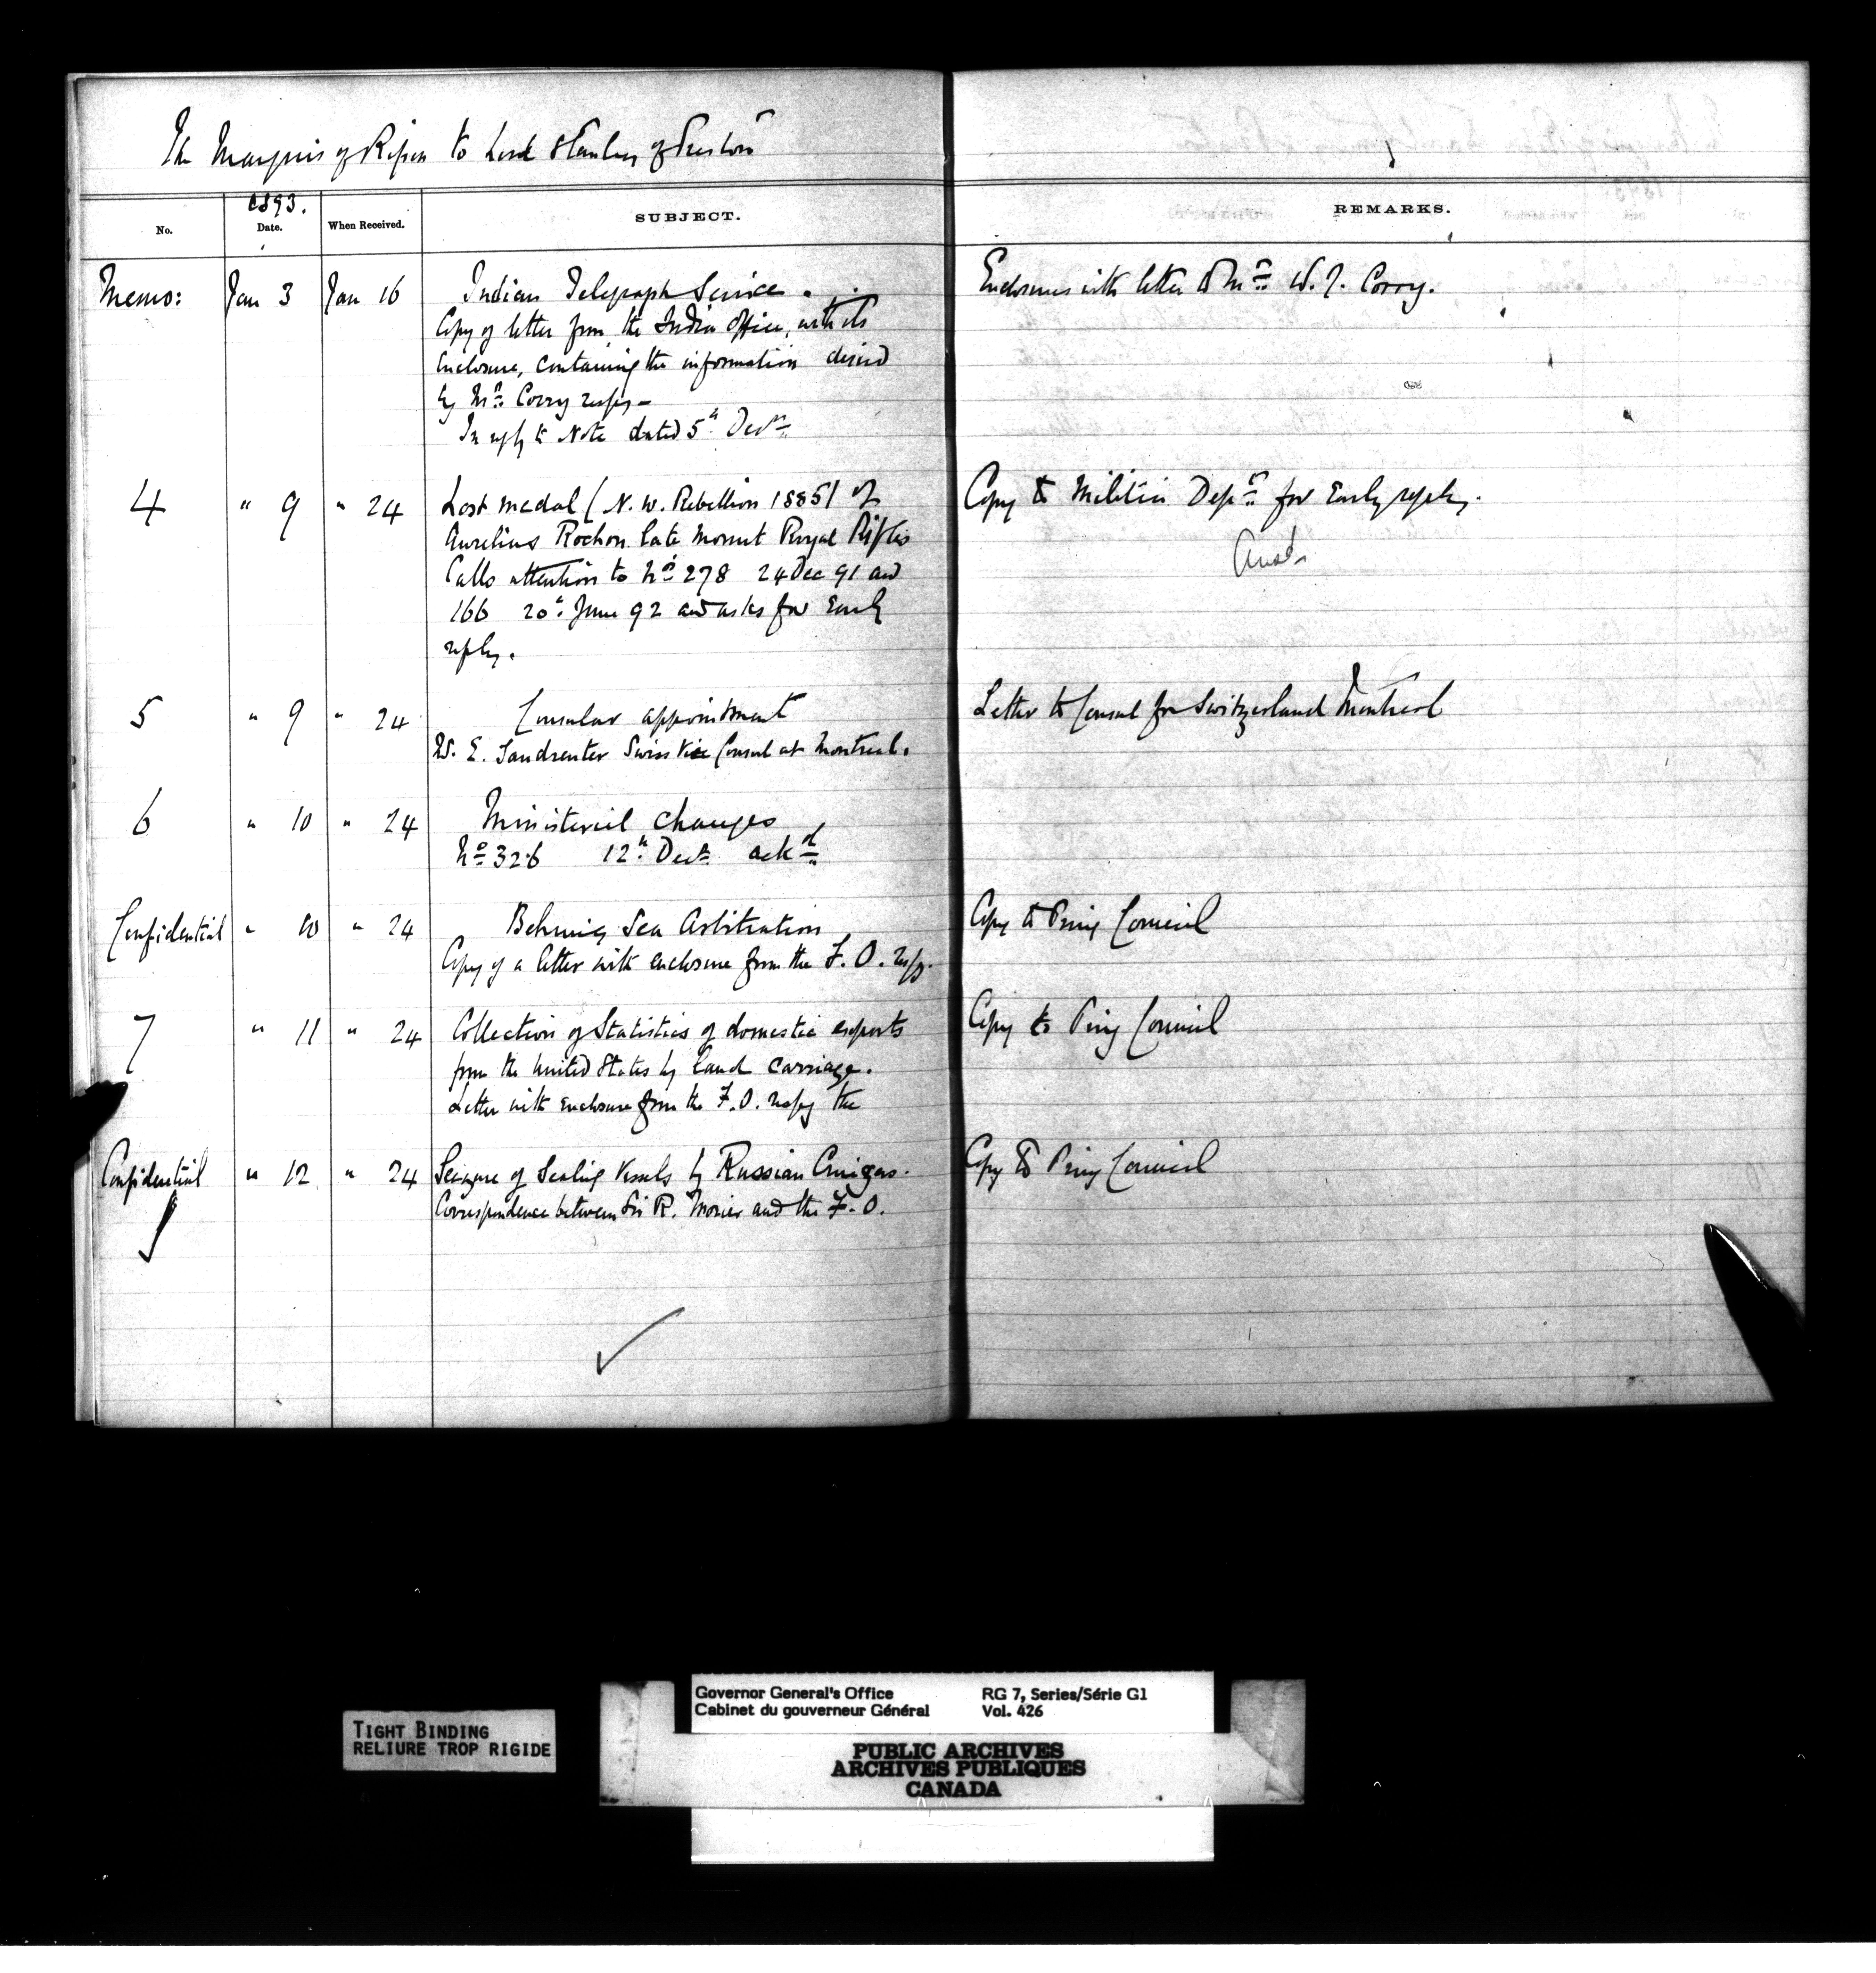 The Marquis of Ripon to Lord Stanley of Preston
No.
1893.
Date.
When Received.
SUBJECT.
REMARKS.
Memo: Jan 3 Jan 16 Indian Telegraph Service. Enclosures with letter to Mr W. J. Corry.
Copy of letter from the India Office, with its
Enclosure, containing the information desired
by Mr Corry respg -
In reply to Note dated 5th Decr
4 " 9 " 24 Lost medal (N. W. Rebellion 1885) of Copy to Militia Dept for Early reply.
Aurelius Rochon late Mount Royal Rifles
Ansd
Calls attention to No 278 24 Dec 91 and
166 20th June 92 and asks for Early
reply.
5 " 9 " 24 Consular appointment Letter to Consul for Switzerland Montreal
E. Sandreuter Swiss Vice Consul at Montreal.
6 " 10 " 24 Ministerial changes
No 326 12th Decr ackd
Confidential " 10 " 24 Behring Sea Arbitration Copy to Privy Council
Copy of a letter with enclosure from the F. O. respg.
7 " 11 " 24 Collection of Statistics of domestic exports Copy to Privy Council
from the United States by land carriage.
Letter with enclosure from the F. O. respg the
Confidential " 12 " 24 Seizure of Sealing Vessels by Russian Cruizers. Copy to Privy Council
Correspondence between Sir R. Morier and the F. O.
TIGHT BINDING
RELIURE TROP RIGIDE
Governor General's Office RG 7, Series/Série G1
Cabinet du gouverneur Général Vol. 426
PUBLIC ARCHIVES
ARCHIVES PUBLIQUES
CANADA